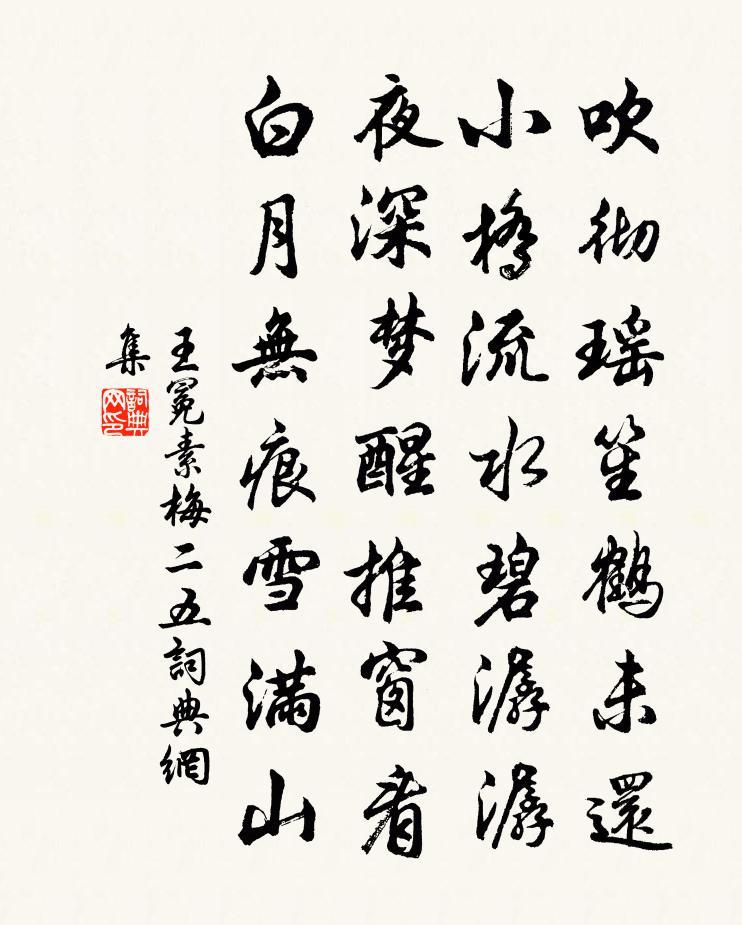 吹彻瑶笙鹤未還
小橋流水碧潺潺
夜深梦醒推窗看
白月無痕雪满山
王冕素梅二五詞典網
集
詞典網印